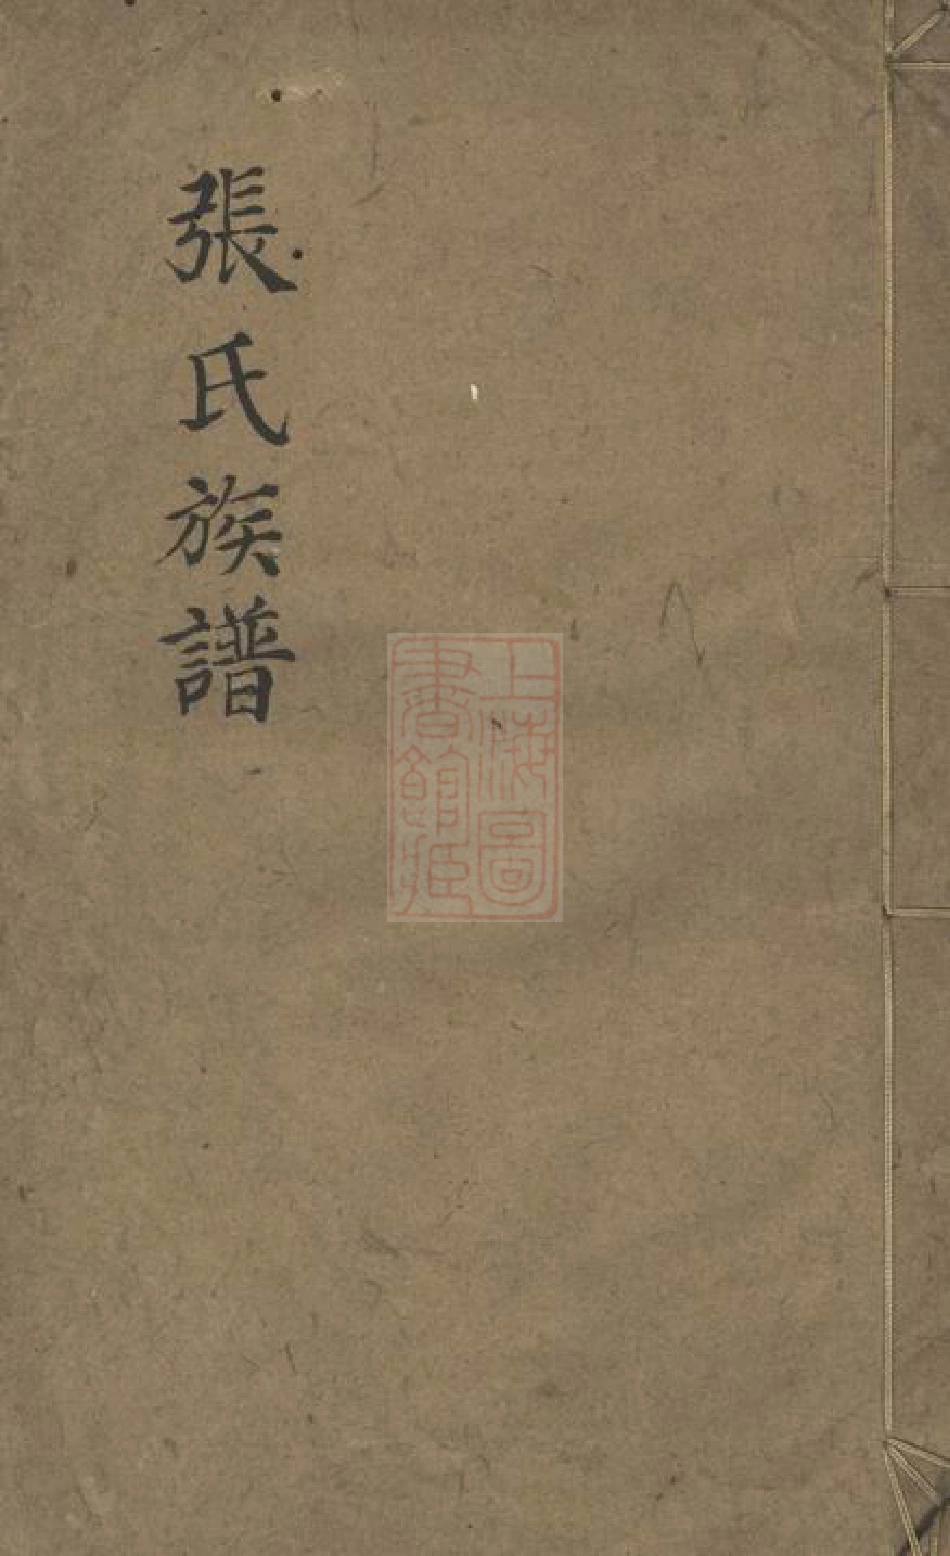 張氏族譜
上海圖
書館藏